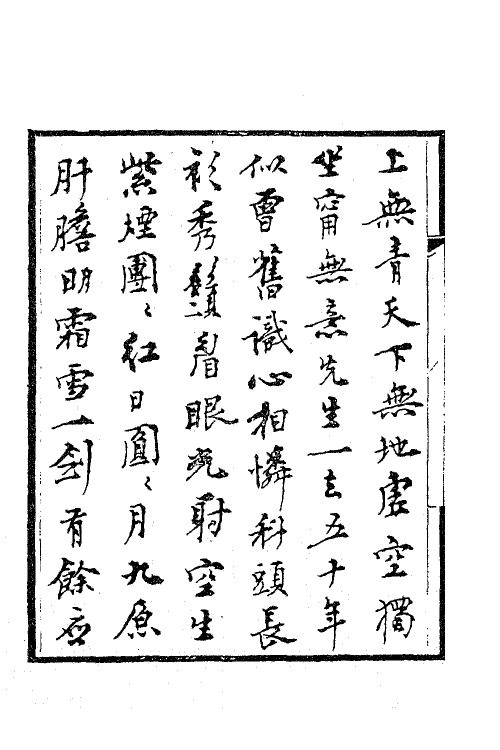 上無青天下無地虛空獨
坐甯無意先生一去五十年
似曾舊識心相憐科頭長
衫秀鬚眉眼光射空生
紫煙團〻紅日圓〻月九原
肝膽明霜雪一劍有餘立